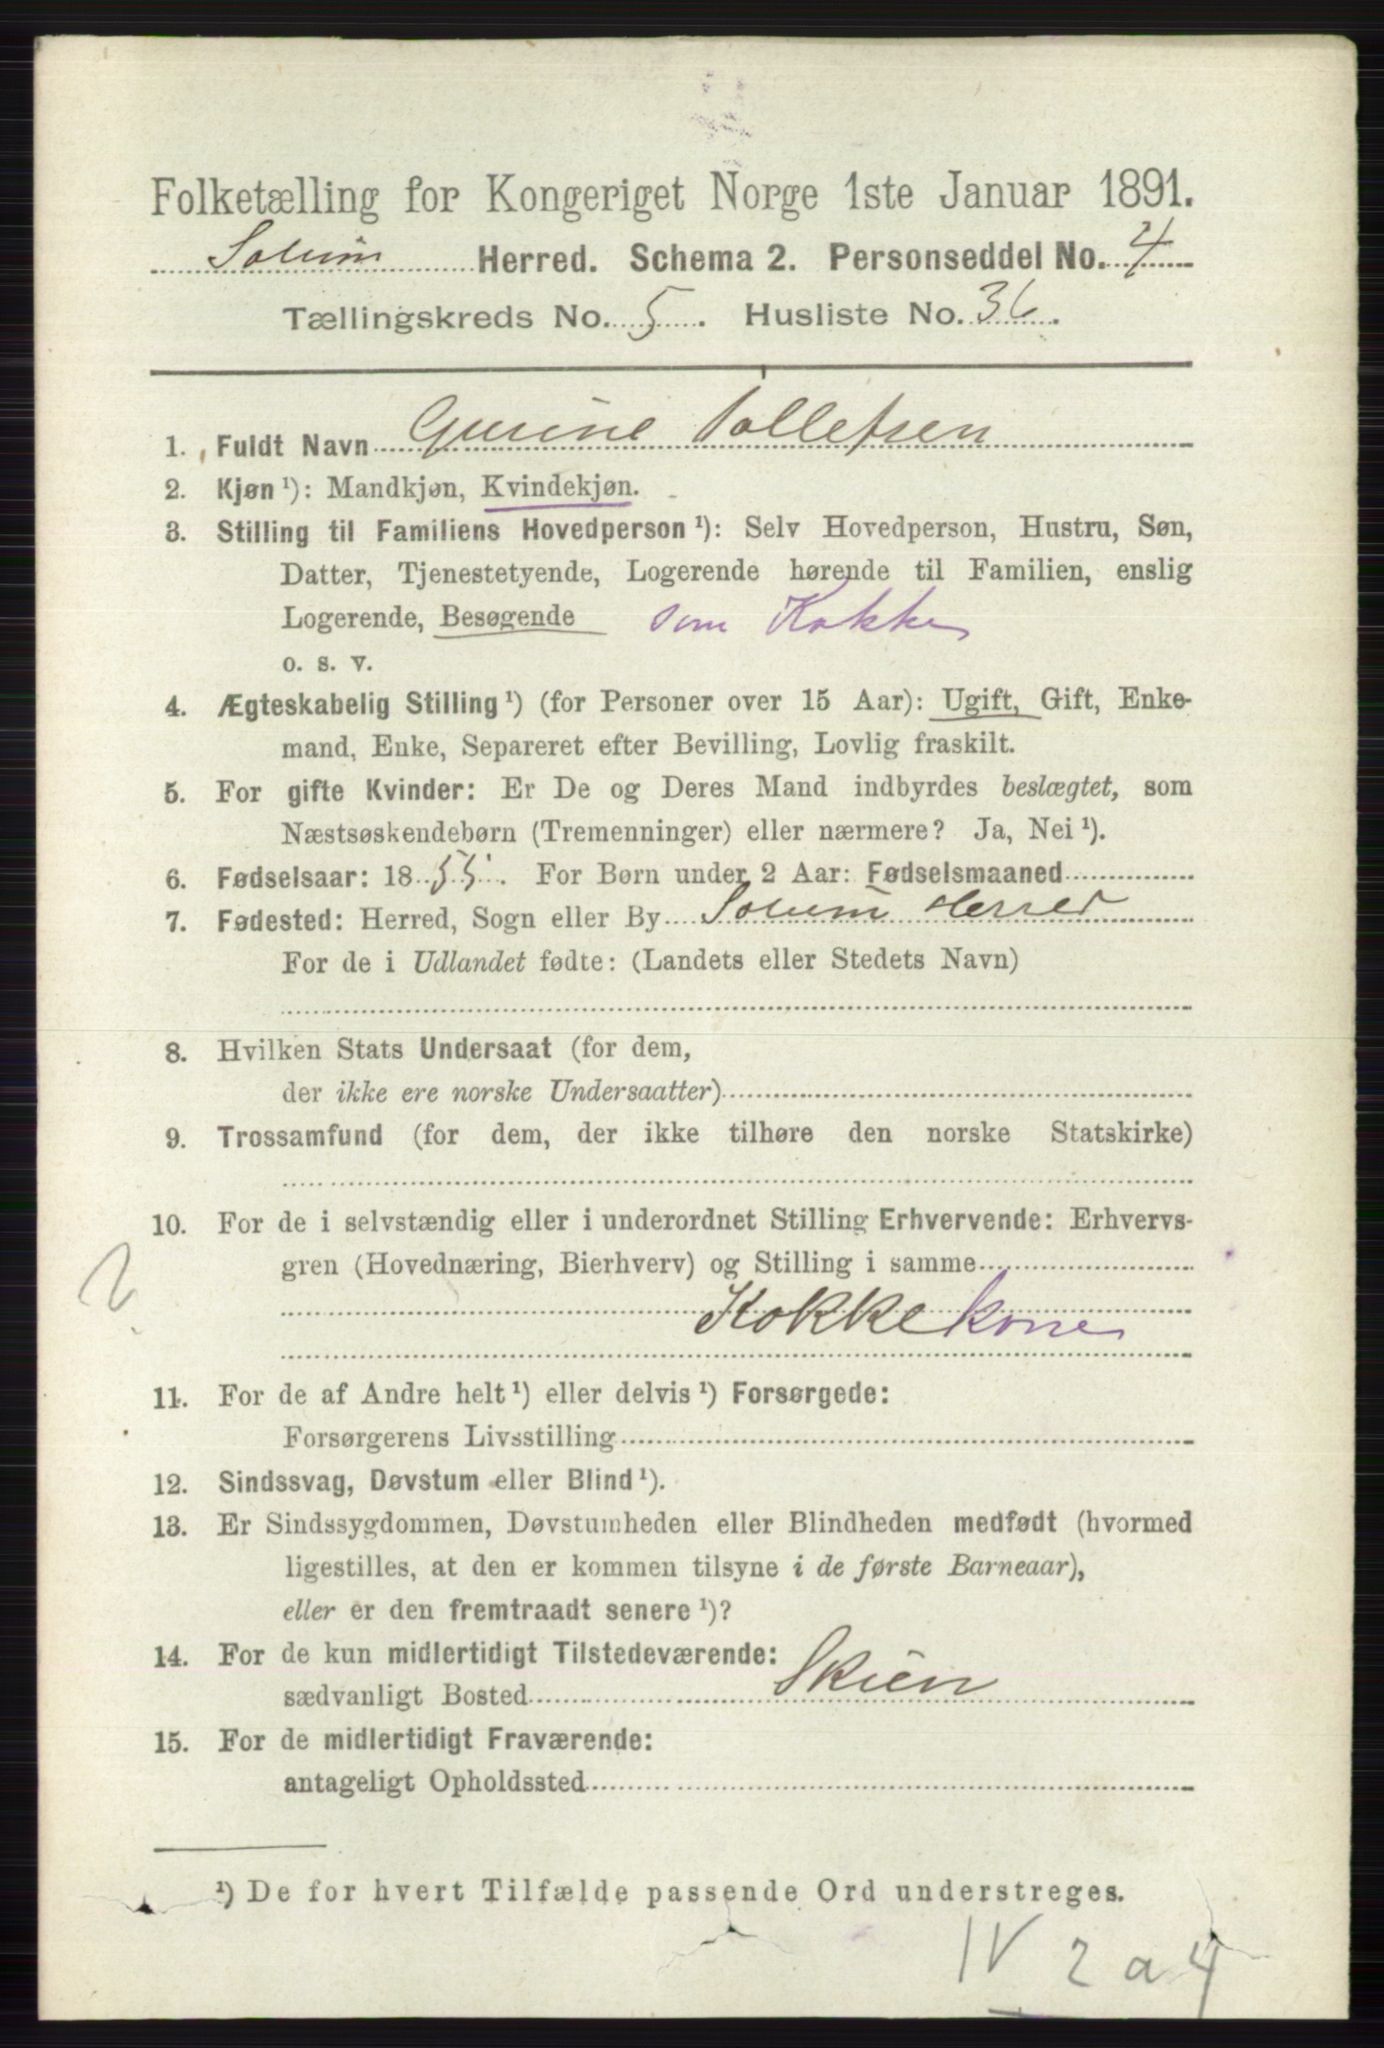 Folketælling for Kongeriget Norge 1ste Januar 1891.
Solum Herred. Schema 2. Personseddel No. 4
Tællingskreds No. 5. Husliste No. 36.
1. Fuldt Navn Gurine Tollefsen
2. Kjøn ¹): Mandkjøn, Kvindekjøn.
3. Stilling til Familiens Hovedperson ¹): Selv Hovedperson, Hustru, Søn,
Datter, Tjenestetyende, Logerende hørende til Familien, enslig
Logerende, Besøgende som Kokke
o. s. v.
4. Ægteskabelig Stilling ¹) (for Personer over 15 Aar): Ugift, Gift, Enke-
mand, Enke, Separeret efter Bevilling, Lovlig fraskilt.
5. For gifte Kvinder: Er De og Deres Mand indbyrdes beslægtet, som
Næstsøskendebørn (Tremenninger) eller nærmere? Ja, Nei ¹).
6. Fødselsaar: 1855. For Børn under 2 Aar: Fødselsmaaned
7. Fødested: Herred, Sogn eller By Solum Herred
For de i Udlandet fødte: (Landets eller Stedets Navn)
8. Hvilken Stats Undersaat (for dem,
der ikke ere norske Undersaatter)
9. Trossamfund (for dem, der ikke tilhøre den norske Statskirke)
10. For de i selvstændig eller i underordnet Stilling Erhvervende: Erhvervs-
gren (Hovednæring, Bierhverv) og Stilling i samme
2
Kokkekone
11. For de af Andre helt ¹) eller delvis ¹) Forsørgede:
Forsørgerens Livsstilling
12. Sindssvag, Døvstum eller Blind ¹).
13. Er Sindssygdommen, Døvstumheden eller Blindheden medfødt (hvormed
ligestilles, at den er kommen tilsyne i de første Barneaar),
eller er den fremtraadt senere ¹)?
14. For de kun midlertidigt Tilstedeværende:
sædvanligt Bosted Skien
15. For de midlertidigt Fraværende:
antageligt Opholdssted
¹) De for hvert Tilfælde passende Ord understreges.
IV 2 a 4